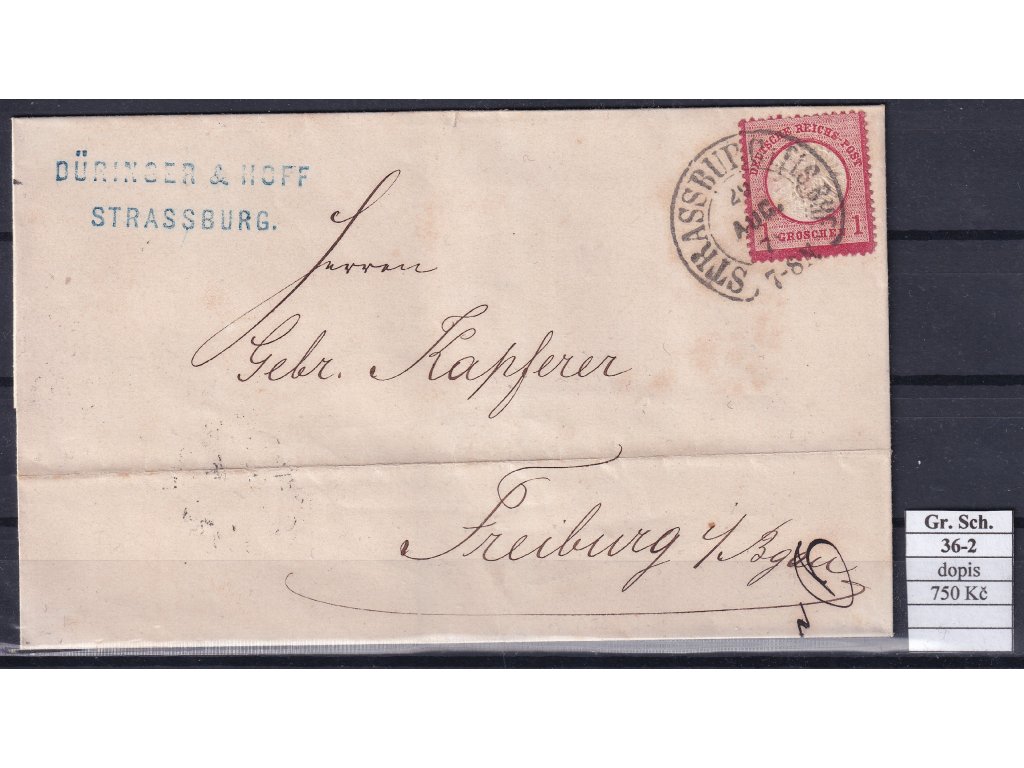 DÜRINGER & HOFF
STRASSBURG.
DEUTSCHE REICHS-POST
1 GROSCHEN 1
STRASSBURG
AUG.
7-8 N
Herren
Gebr. Kapferer
Freiburg i/Bgau
Gr. Sch.
36-2
dopis
750 Kč